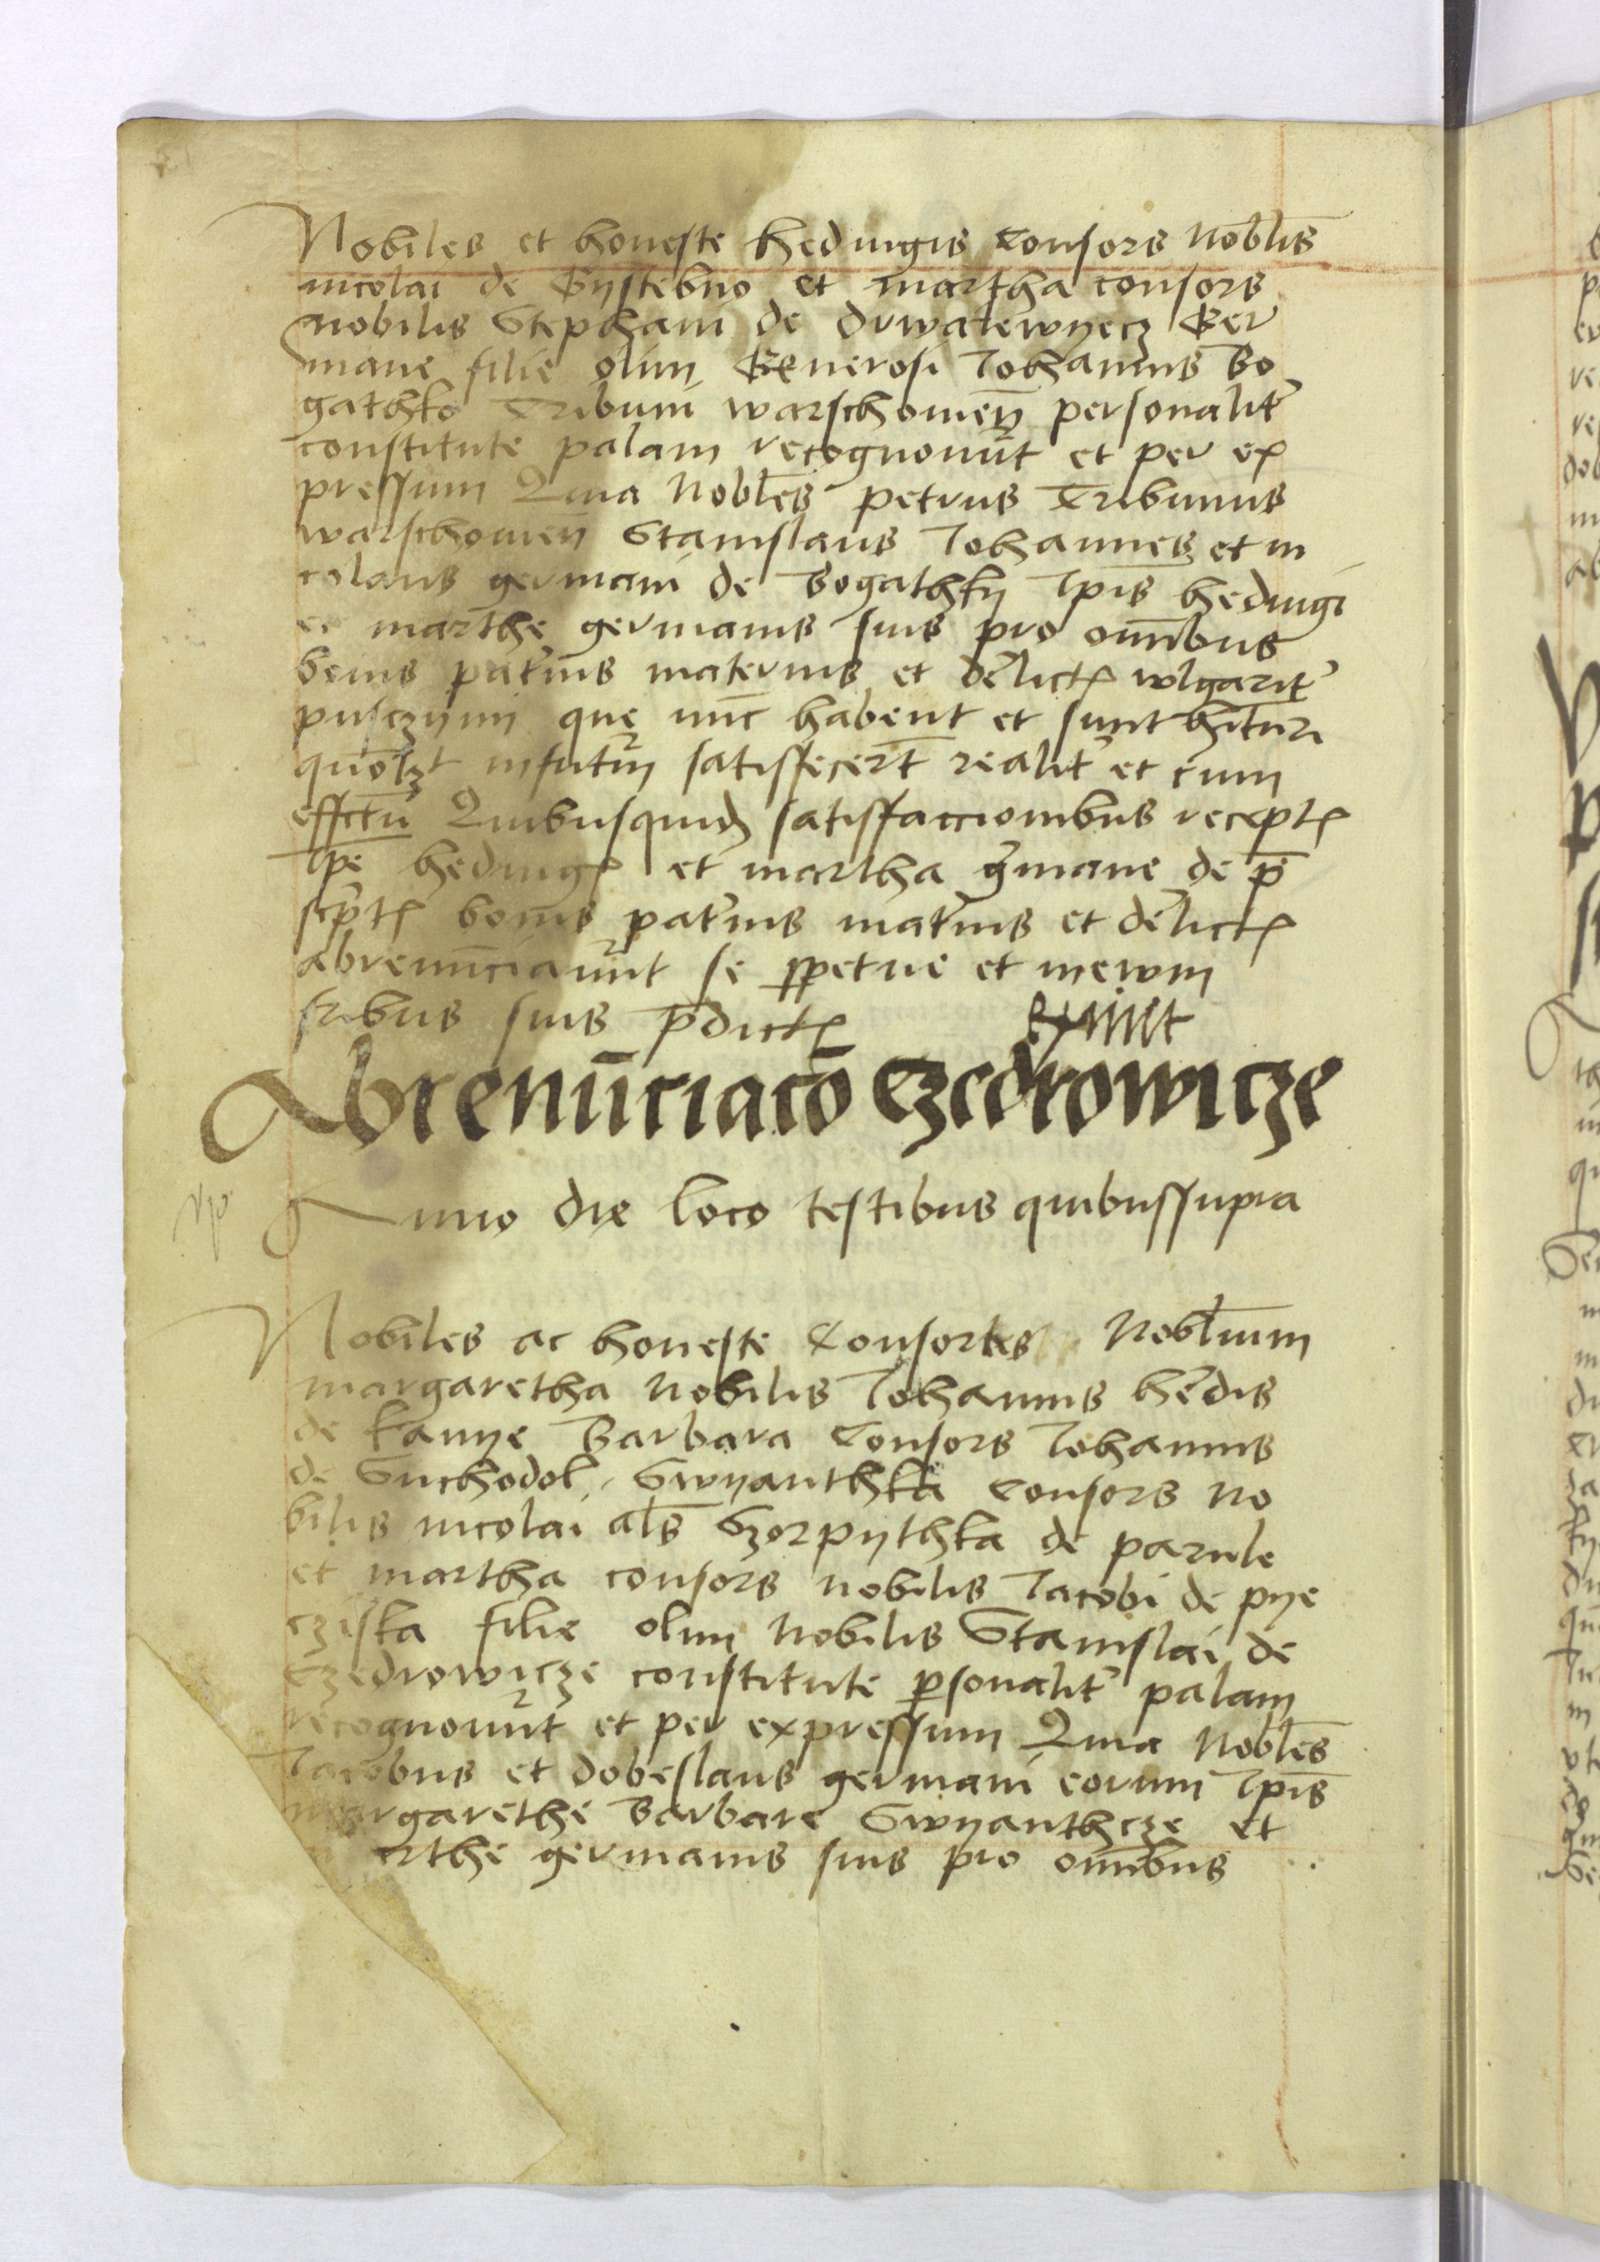 Nobiles et honeste hedwigis Consors Nobl̄is
nicolai de Gystebno et martha consors
nobilis Stephani de Drwalewyecz Ger
mane filie olim Generosi Iohannis Bo
gathko Tribuni warschouien̄ personalit̄
constitute palam recognouūt et per ex
pressum Quia Nobl̄es petrus Tribunus
warschouien̄ Stanislaus Iohannes et ni
colaus germani de Bogathky Ip̄is hedwigi
et marthe germanis suis pro om̄ibus
bonis pat̄nis maternis et d̄elictꝭ wlgarit̄
pusczyny que nūc habent et sunt hīturi
quōlꝫt in futūr̄ satisfecer̄t realit̄ et cum
effc̄tu Quibusquidꝫ satisfaccionibus receptꝭ
Ip̄e hedwigꝭ et martha ḡmane de p̄
scp̄tꝭ bonis pat̄nis mat̄nis et d̄elictꝭ
abrenūciauūt se ꝑpetue et in ewm
fribus suis p̄dictꝭ
Abrenūciacō Czedrowicze
Anno die loco testibus quibussupra
Nobiles ac honeste Consortes Nobl̄ium
margaretha Nobilis Iohannis hēdis
de kanye Barbara Consors Iohannis
de Suchodol Swyanthka Consors No
bilis nicolai al̄s Szorpythka de parule
et martha consors nobilis Iacobi de pye
cziska filie olim Nobilis Stanislai de
Czedrowicze constitute ꝑsonalit̄ palam
recognouūt et per expressum Quia Nobl̄es
Iacobus et dobeslaus germani eorum Ip̄is
margarethe Barbare Swyanthcze et
marthe germanis suis pro om̄ibus